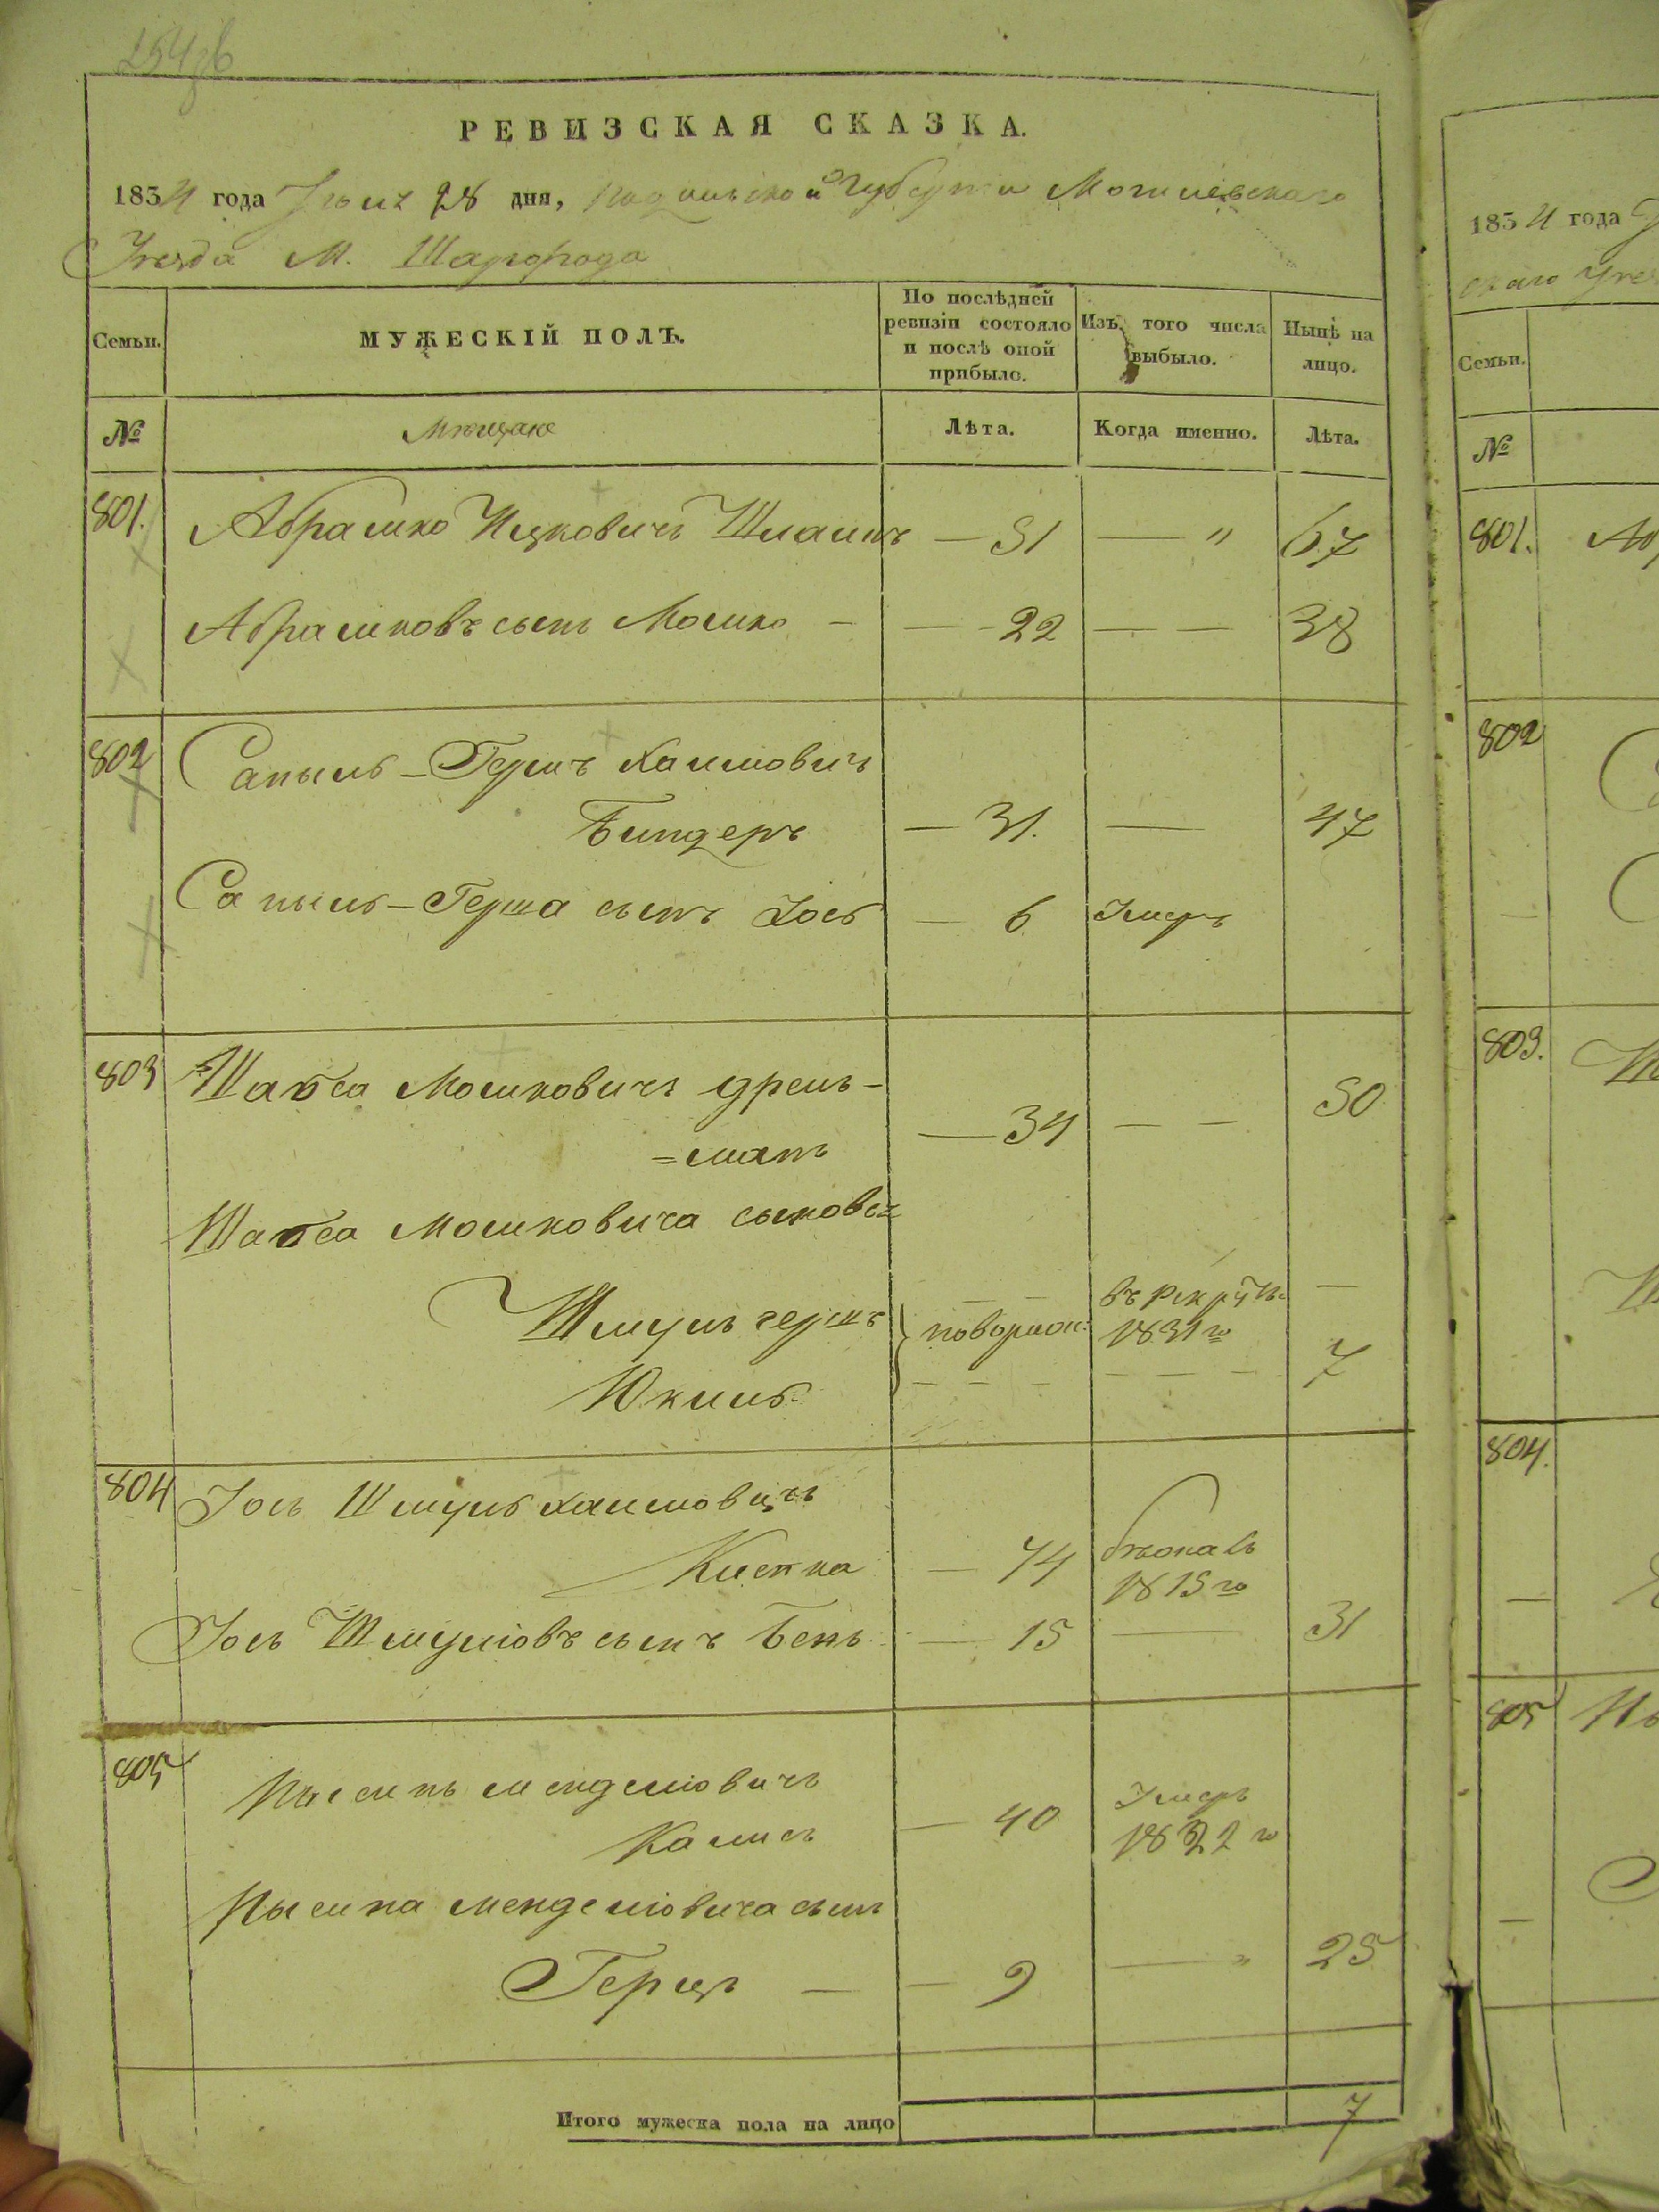 254об
РЕВИЗСКАЯ СКАЗКА.
1834 года 28 дня, Подольской Губернии Могилевскаго
Уезда М. Шаргорода
Семьи.
МУЖЕСКІЙ ПОЛЪ.
По послѣдней ревизіи состояло и послѣ оной прибыло.
Изъ того числа выбыло.
Нынѣ на лицо.
№
Мещане
Лѣта.
Когда именно.
Лѣта.
801. Абрашко Ицковичъ — 51 — " 67
Абрашковъ сынъ Мошко — — 22 — — 38
802 Хаимовичъ
Биндеръ — 31. — 47
сынъ Іось — 6 Умеръ
803 Мошковичъ дрель-
=манъ — 34 — — 50
Мошковича сыновья
Шмуль гершъ въ рекруты 1831го —
Юкиль — — — — — — 7
804 Іось Шмуль Хаимовичъ
— 74 бежалъ 1815го
Іось Шмулiовъ сынъ Бень — 15 — 31
805 Менделіовичъ
— 40 Умеръ 1822го
Менделіовича сынъ
Герцъ — — 9 — " 25
Итого мужеска пола на лицо 7
1834 года
скаго Уез
Семьи.
№
801. Аб
802
803.
804.
805